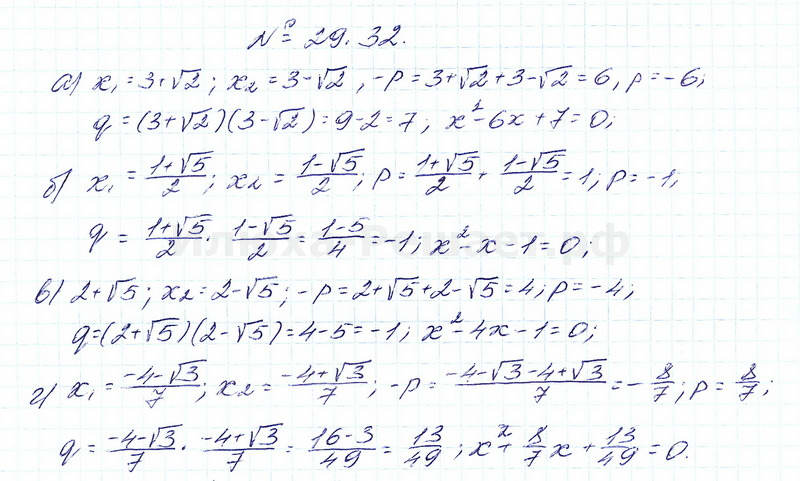 № 29.32.
а) x₁ = 3+√2; x₂ = 3-√2, -p = 3+√2+3-√2 = 6, p = -6;
q = (3+√2)(3-√2) = 9-2 = 7; x²-6x+7=0;
б) x₁ = (1+√5)/2; x₂ = (1-√5)/2; p = (1+√5)/2 + (1-√5)/2 = 1; p = -1;
q = (1+√5)/2 · (1-√5)/2 = (1-5)/4 = -1; x²-x-1=0;
в) 2+√5; x₂ = 2-√5; -p = 2+√5+2-√5 = 4; p = -4;
q = (2+√5)(2-√5) = 4-5 = -1; x²-4x-1=0;
г) x₁ = (-4-√3)/7; x₂ = (-4+√3)/7; -p = (-4-√3-4+√3)/7 = -8/7; p = 8/7;
q = (-4-√3)/7 · (-4+√3)/7 = (16-3)/49 = 13/49; x²+8/7x+13/49=0.